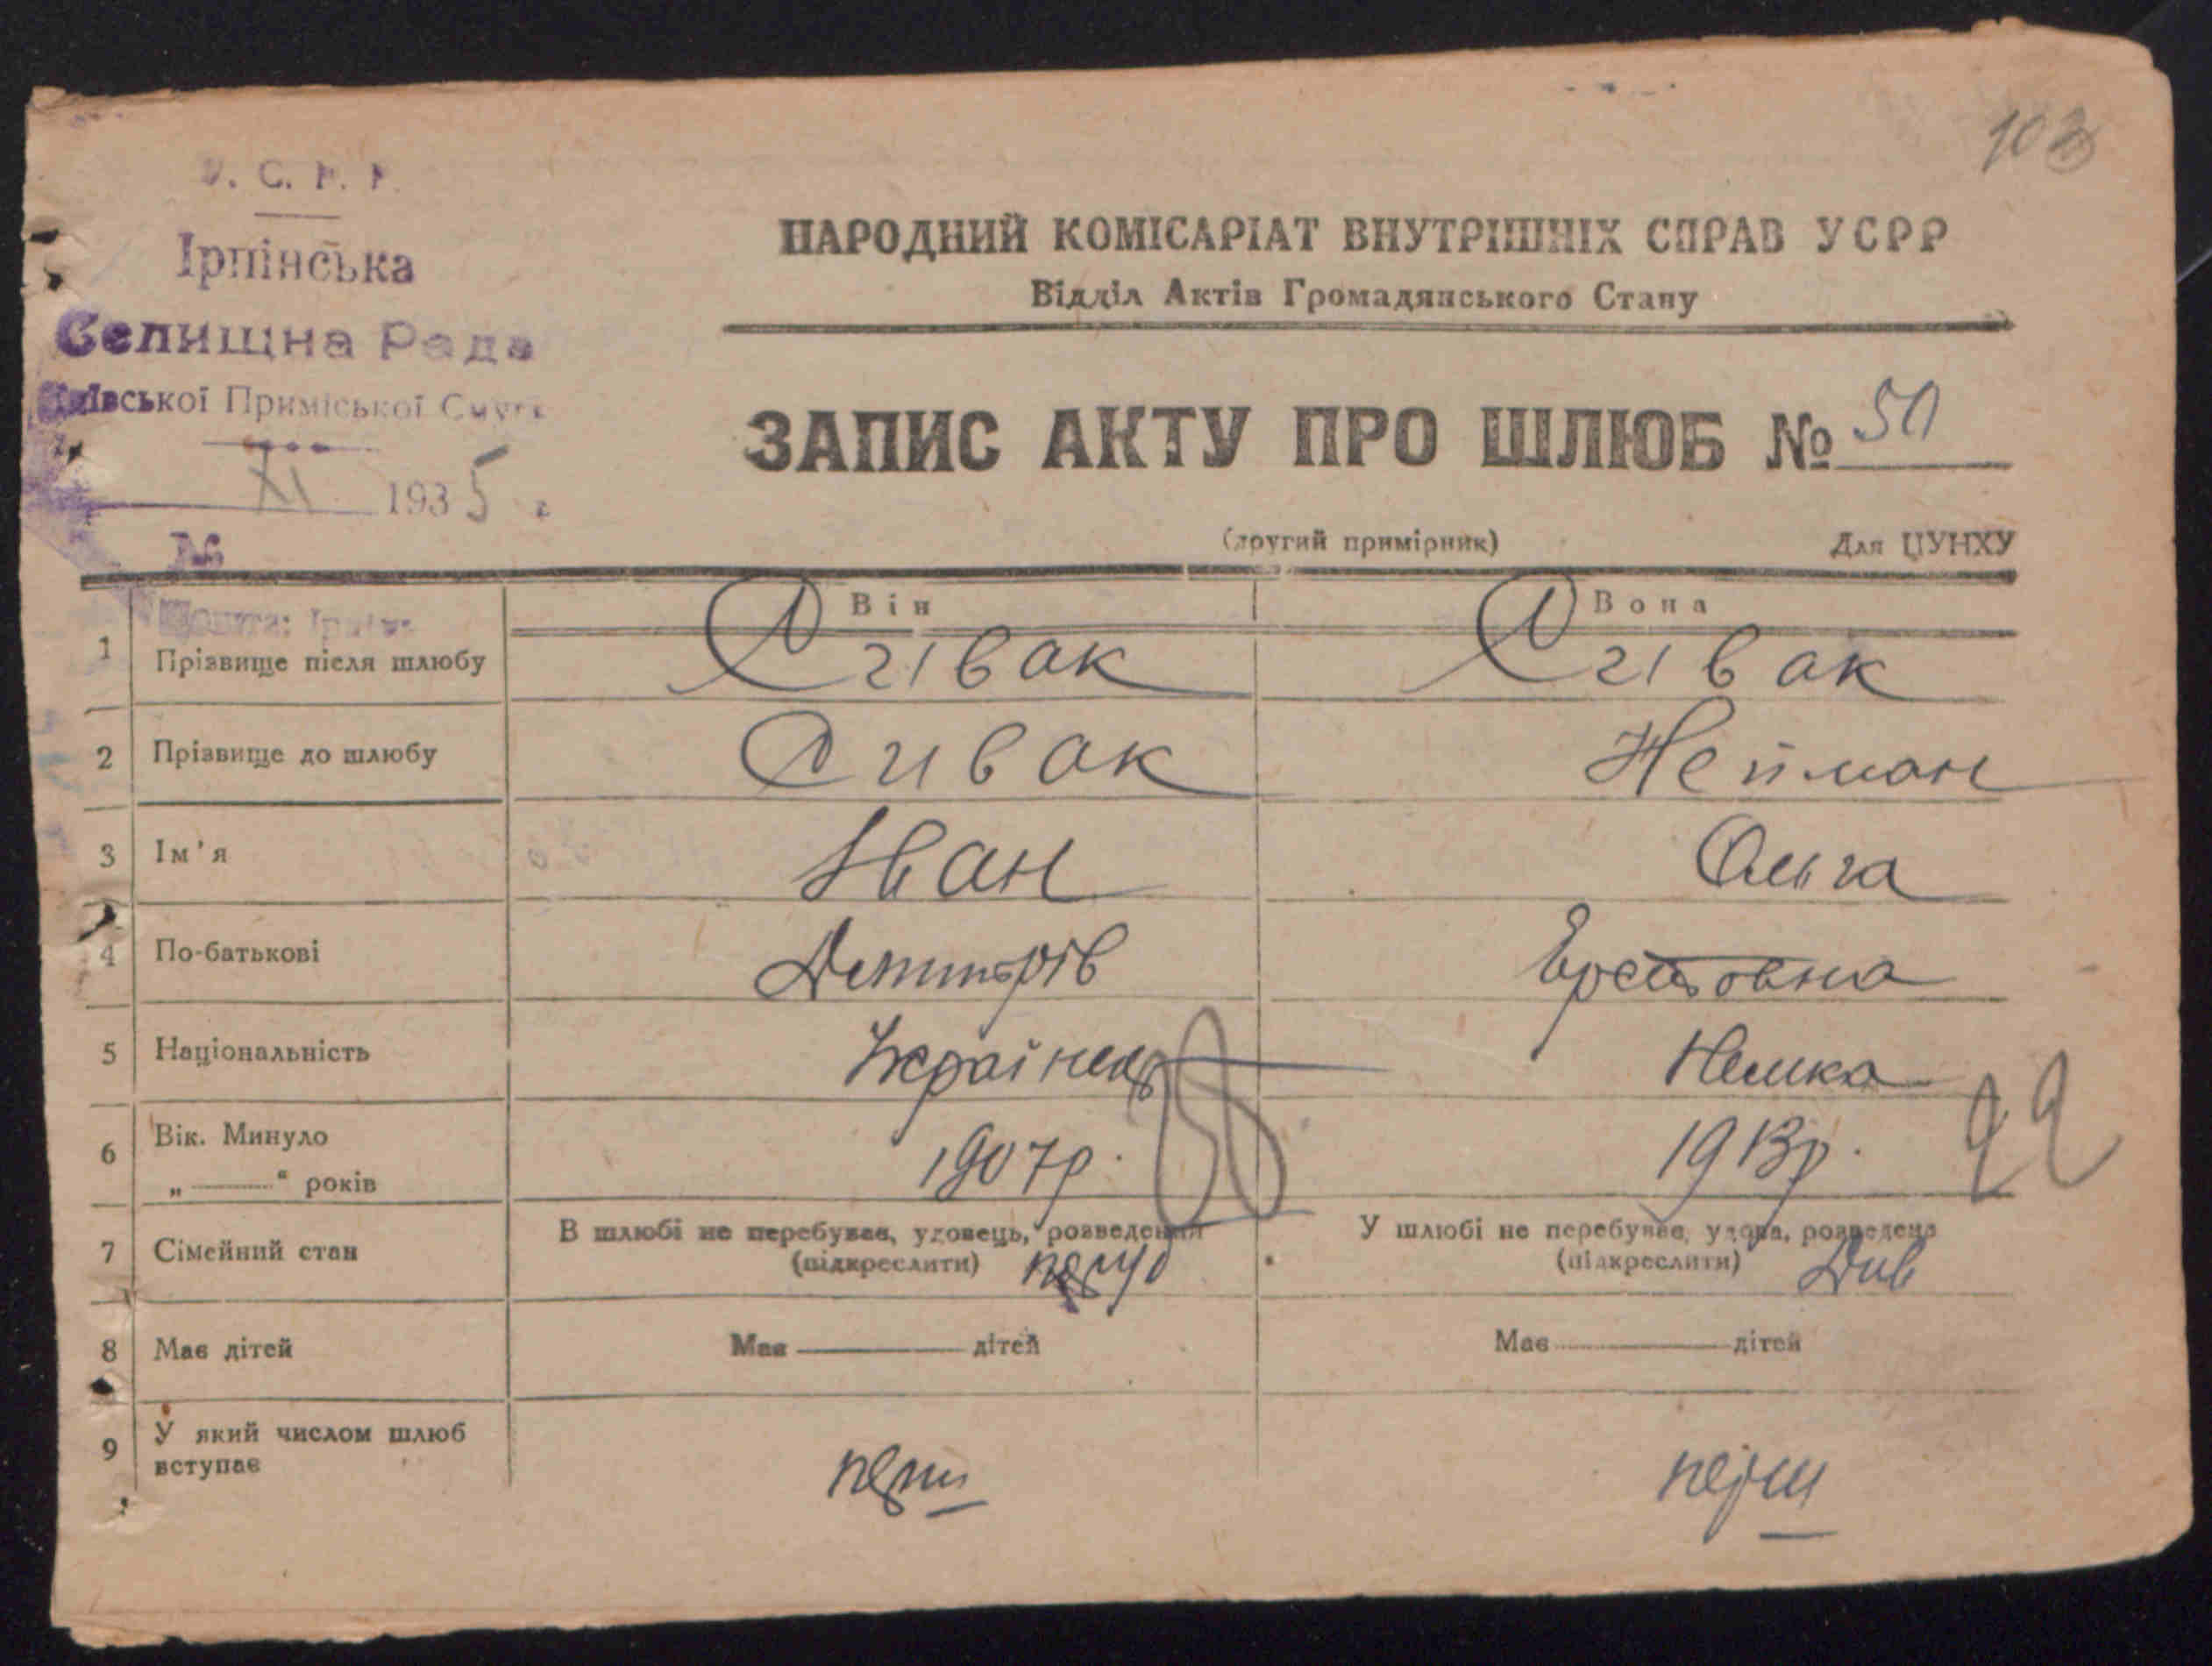 103
У. С. Р. Р.
Ірпінська
Селищна Рада
Київської Приміської Смуги
XI 1935 г.
№
Пошта: Ірпінь
НАРОДНИЙ КОМІСАРІАТ ВНУТРІШНІХ СПРАВ УСРР
Відділ Актів Громадянського Стану
ЗАПИС АКТУ ПРО ШЛЮБ № 50
(другий примірник) Для ЦУНХУ
Він Вона
1 Прізвище після шлюбу Сивак Сивак
2 Прізвище до шлюбу Сивак Нейман
3 Ім'я Іван Ольга
4 По-батькові Дмитрів
5 Національність Українець Немка
6 Вік. Минуло 1907р. 1913р. 22
„ —— “ років
7 Сімейний стан В шлюбі не перебував, удовець, розведений У шлюбі не перебуває, удова, розведена
(підкреслити) (підкреслити) Дів
8 Має дітей Має —— дітей Має —— дітей
9 У який числом шлюб
вступає перш перш